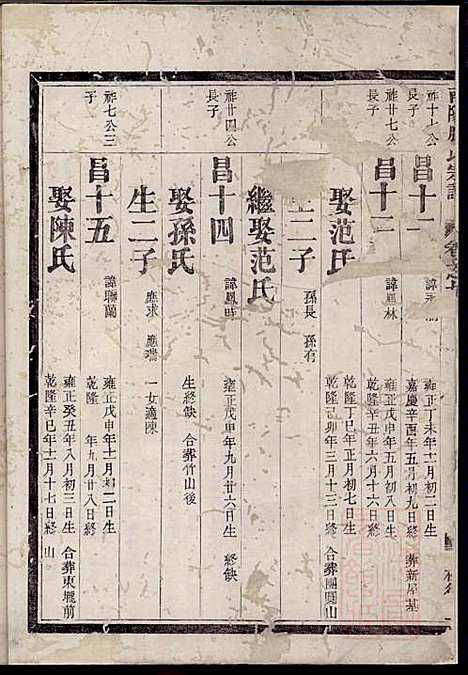 祚十七公
長子
昌十
雍正丁未年十一月初二日生
嘉慶辛酉年五月初九日終
葬新屋基
祚廿七公
長子
昌十三
諱鳳林
雍正戊申年五月初八日生
乾隆辛丑年六月十六日終
娶范氏
乾隆丁巳年正月初七日生
乾隆己卯年三月十三日終
合葬團圓山
生二子
孫長 孫有
繼娶范氏
祚廿四公
長子
昌十四
諱鳳時
雍正戊申年九月廿六日生
終缺
娶孫氏
生終缺
合葬竹山後
生二子
應求 應瑞
一女適陳
祚七公三
子
昌十五
諱聯蘭
雍正戊申年十一月初二日生
乾隆 年九月廿八日終
娶陳氏
雍正癸丑年八月初三日生
乾隆辛巳年十二月十七日終
合葬東堰前
山